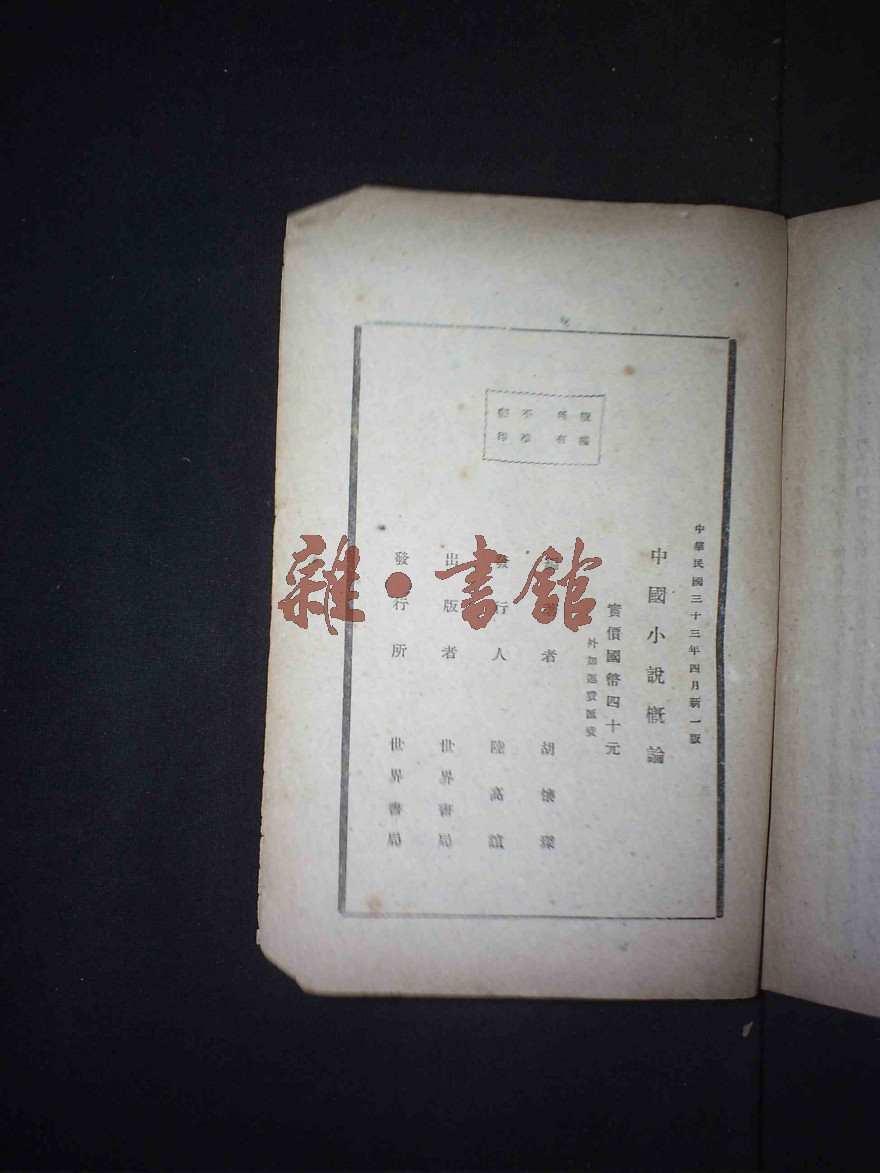 中華民國三十三年四月新一版
中國小說概論
實價國幣四十元
外加運費滙費
者 胡懷琛
發行人 陸高誼
出版者 世界書局
發行所 世界書局
版權
所有
不准
翻印
雜·書館